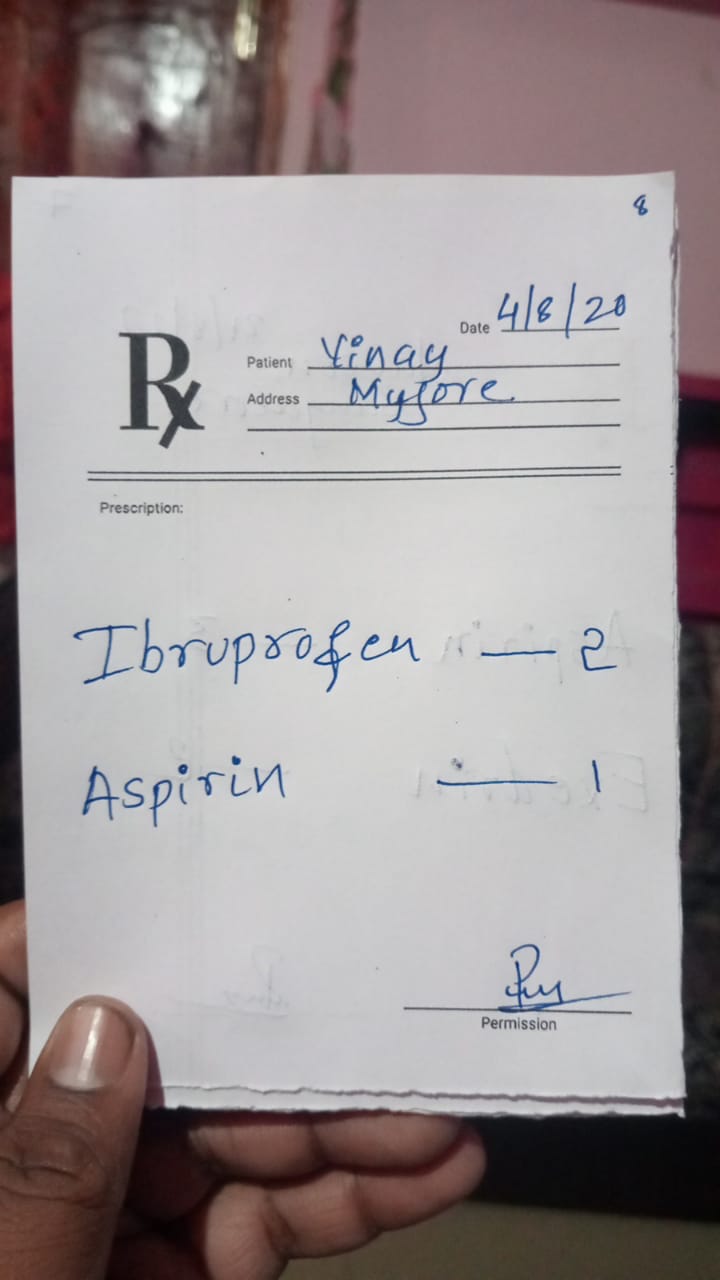 8
Date 4/8/20
Rx
Patient Vinay
Address Mysore
Prescription:
Ibruprofen — 2
Aspirin — 1
Permission